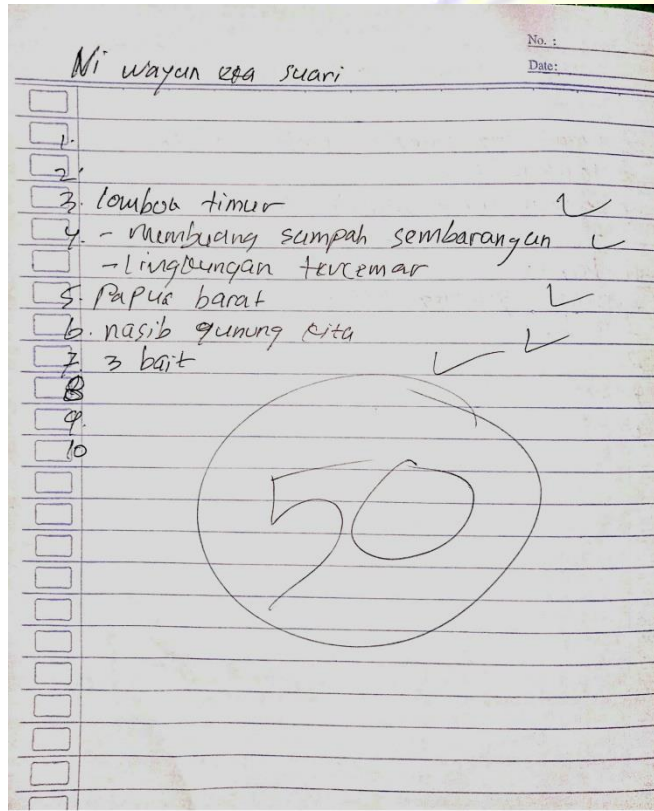 No. :
Date:
Ni wayan eta suari
1.
2.
3. lombok timur
4. - membuang sampah sembarangan
- lingkungan tercemar
5. Papua barat
6. nasib gunung kita
7. 3 bait
8
9.
10
50